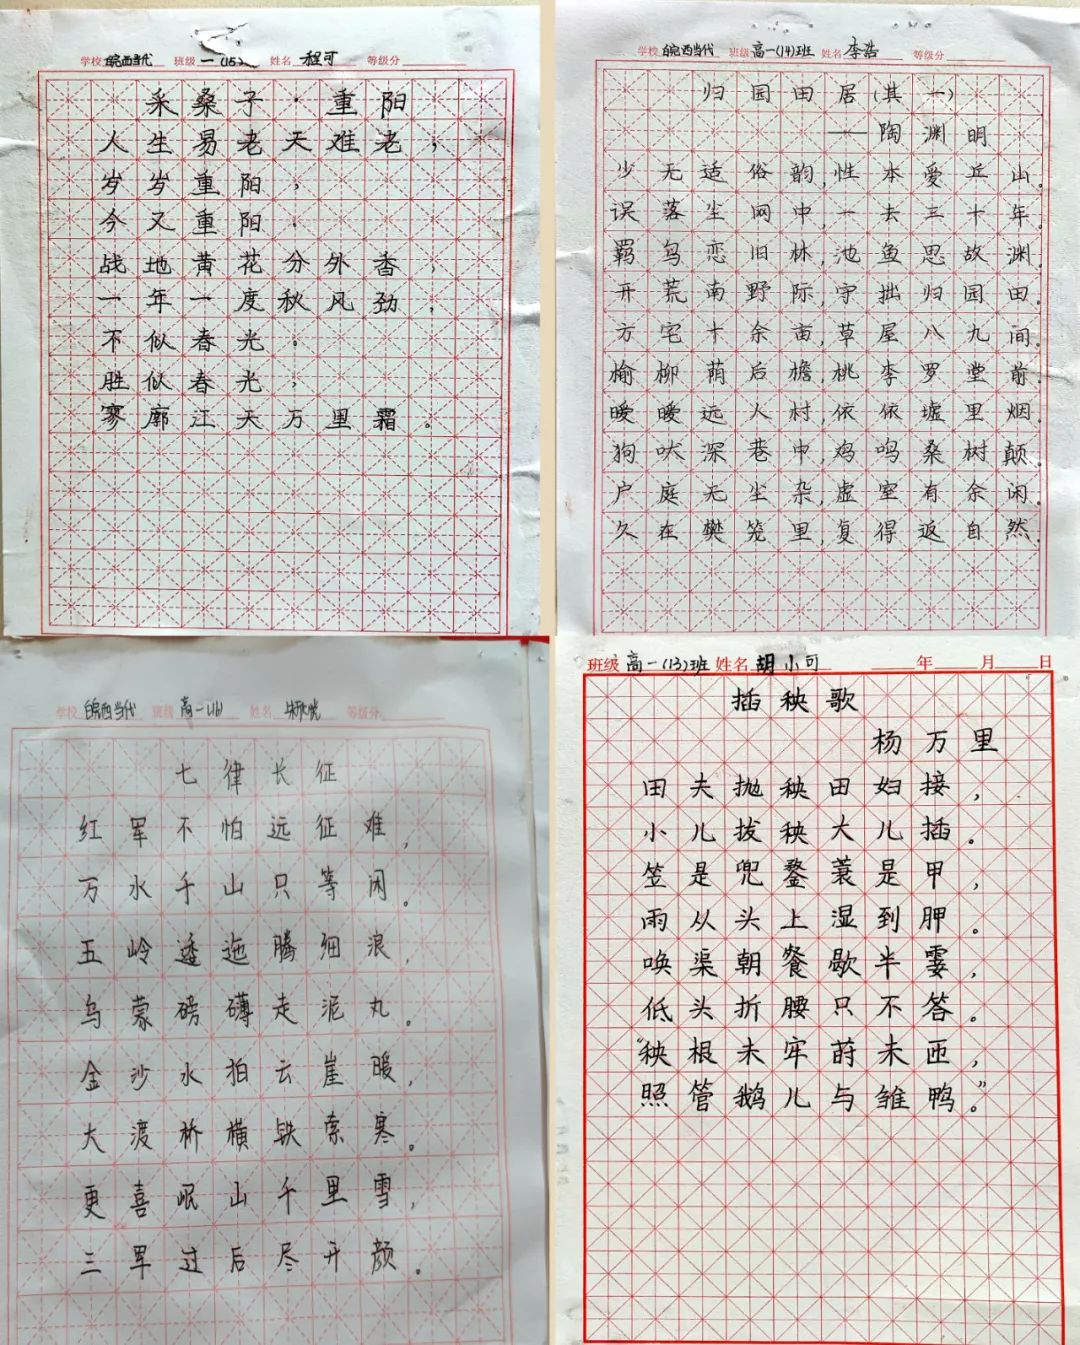 学校 皖西当代 班级 一(15) 姓名 程可 等级分
采桑子·重阳
人生易老天难老，
岁岁重阳，
今又重阳，
战地黄花分外香，
一年一度秋风劲，
不似春光。
胜似春光，
寥廓江天万里霜。
学校 皖西当代 班级 高一(14)班 姓名 李浩 等级分
归园田居(其一)
——陶渊明
少无适俗韵,性本爱丘山。
误落尘网中,一去三十年。
羁鸟恋旧林,池鱼思故渊。
开荒南野际,守拙归园田。
方宅十余亩,草屋八九间。
榆柳荫后檐,桃李罗堂前。
暧暧远人村,依依墟里烟。
狗吠深巷中,鸡鸣桑树颠。
户庭无尘杂,虚室有余闲。
久在樊笼里,复得返自然。
学校 皖西当代 班级 高一(16) 姓名 等级分
七律长征
红军不怕远征难,
万水千山只等闲。
五岭逶迤腾细浪,
乌蒙磅礴走泥丸。
金沙水拍云崖暖,
大渡桥横铁索寒。
更喜岷山千里雪,
三军过后尽开颜。
班级 高一(13)班 姓名 胡小可 年 月 日
插秧歌
杨万里
田夫抛秧田妇接，
小儿拔秧大儿插。
笠是兜鍪蓑是甲，
雨从头上湿到胛。
唤渠朝餐歇半霎，
低头折腰只不答。
“秧根未牢莳未匝，
照管鹅儿与雏鸭。”